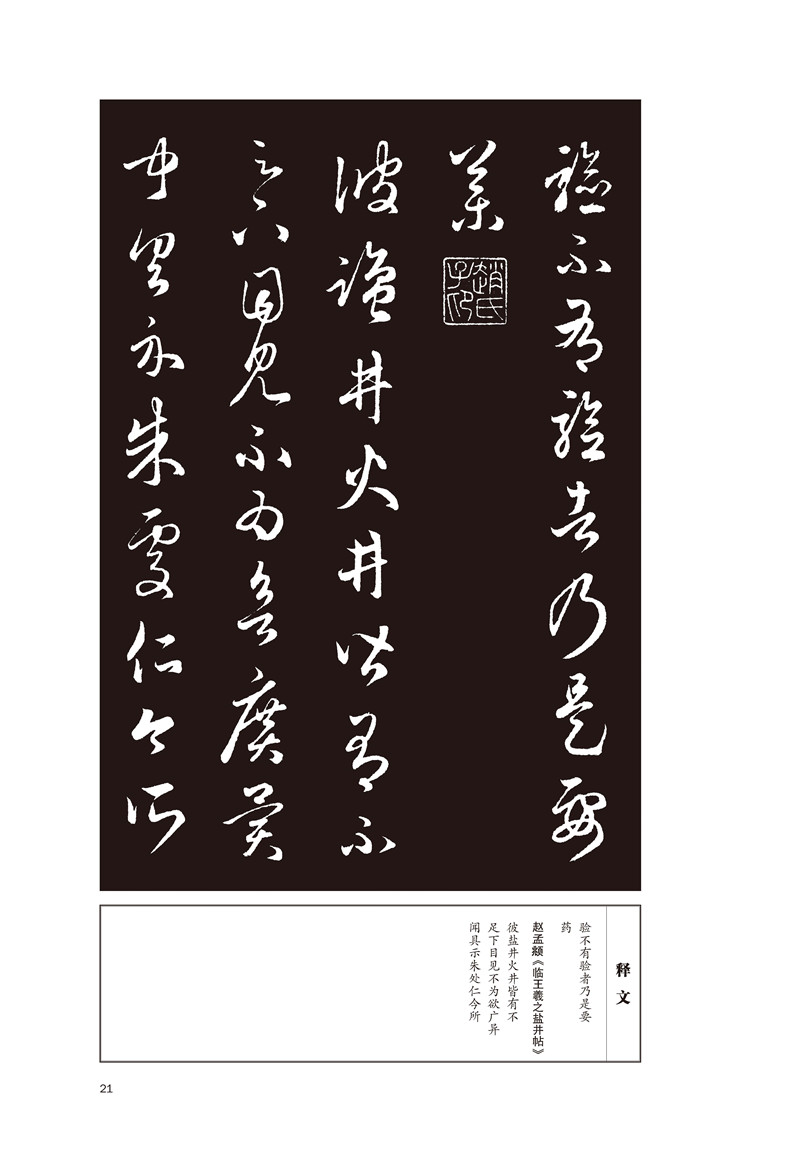 驗不有驗者乃是要
藥
趙氏子卬
彼鹽井火井皆有不
足下目見不為欲廣異
聞具示朱處仁今所
释文
验不有验者乃是要
药
赵孟頫《临王羲之盐井帖》
彼盐井火井皆有不
足下目见不为欲广异
闻具示朱处仁今所
21